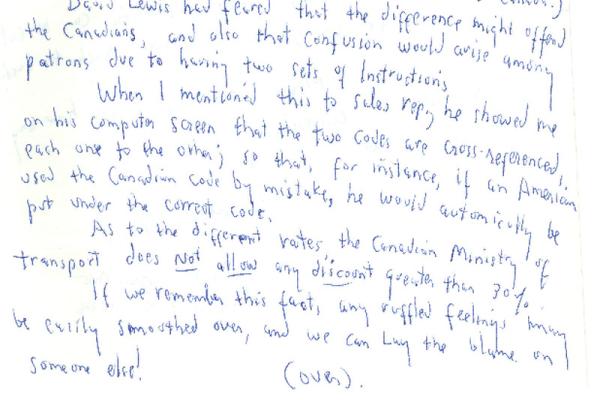 David Lewis had feared that the difference might offend
the Canadians, and also that confusion would arise among
patrons due to having two sets of Instructions
When I mentioned this to sales rep, he showed me
on his computer screen that the two codes are cross-referenced,
each one to the other; so that, for instance, if an American
used the Canadian code by mistake, he would automically be
put under the correct code.
As to the different rates, the Canadian Ministry of
transport does Not allow any discount greater than 30%.
If we remember this fact, any ruffled feelings may
be easily smoothed over, and we can Lay the blame on
someone else!
(over).